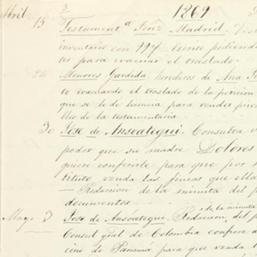 1869
Abril 15 Testament.ª José Madrid. Vis
inventario con 194 pidiendo
ter para evacuar el traslado.
26 Menores Gardida herederos de Ana
to evacuando el traslado de la peticion
que se le de licencia para vender
de la testamentaria.
30 José de Ansoategui. Consulta
poder que su madre Dolores
quien conferirle para que por
tituto, venda las fincas que ella
— Redaccion de la minuta del p
documentos —
Mayo 3 José de Ansoategui. Redaccion del p
Consul gral de Colombia confiere a
cino de Panamá para que venda l